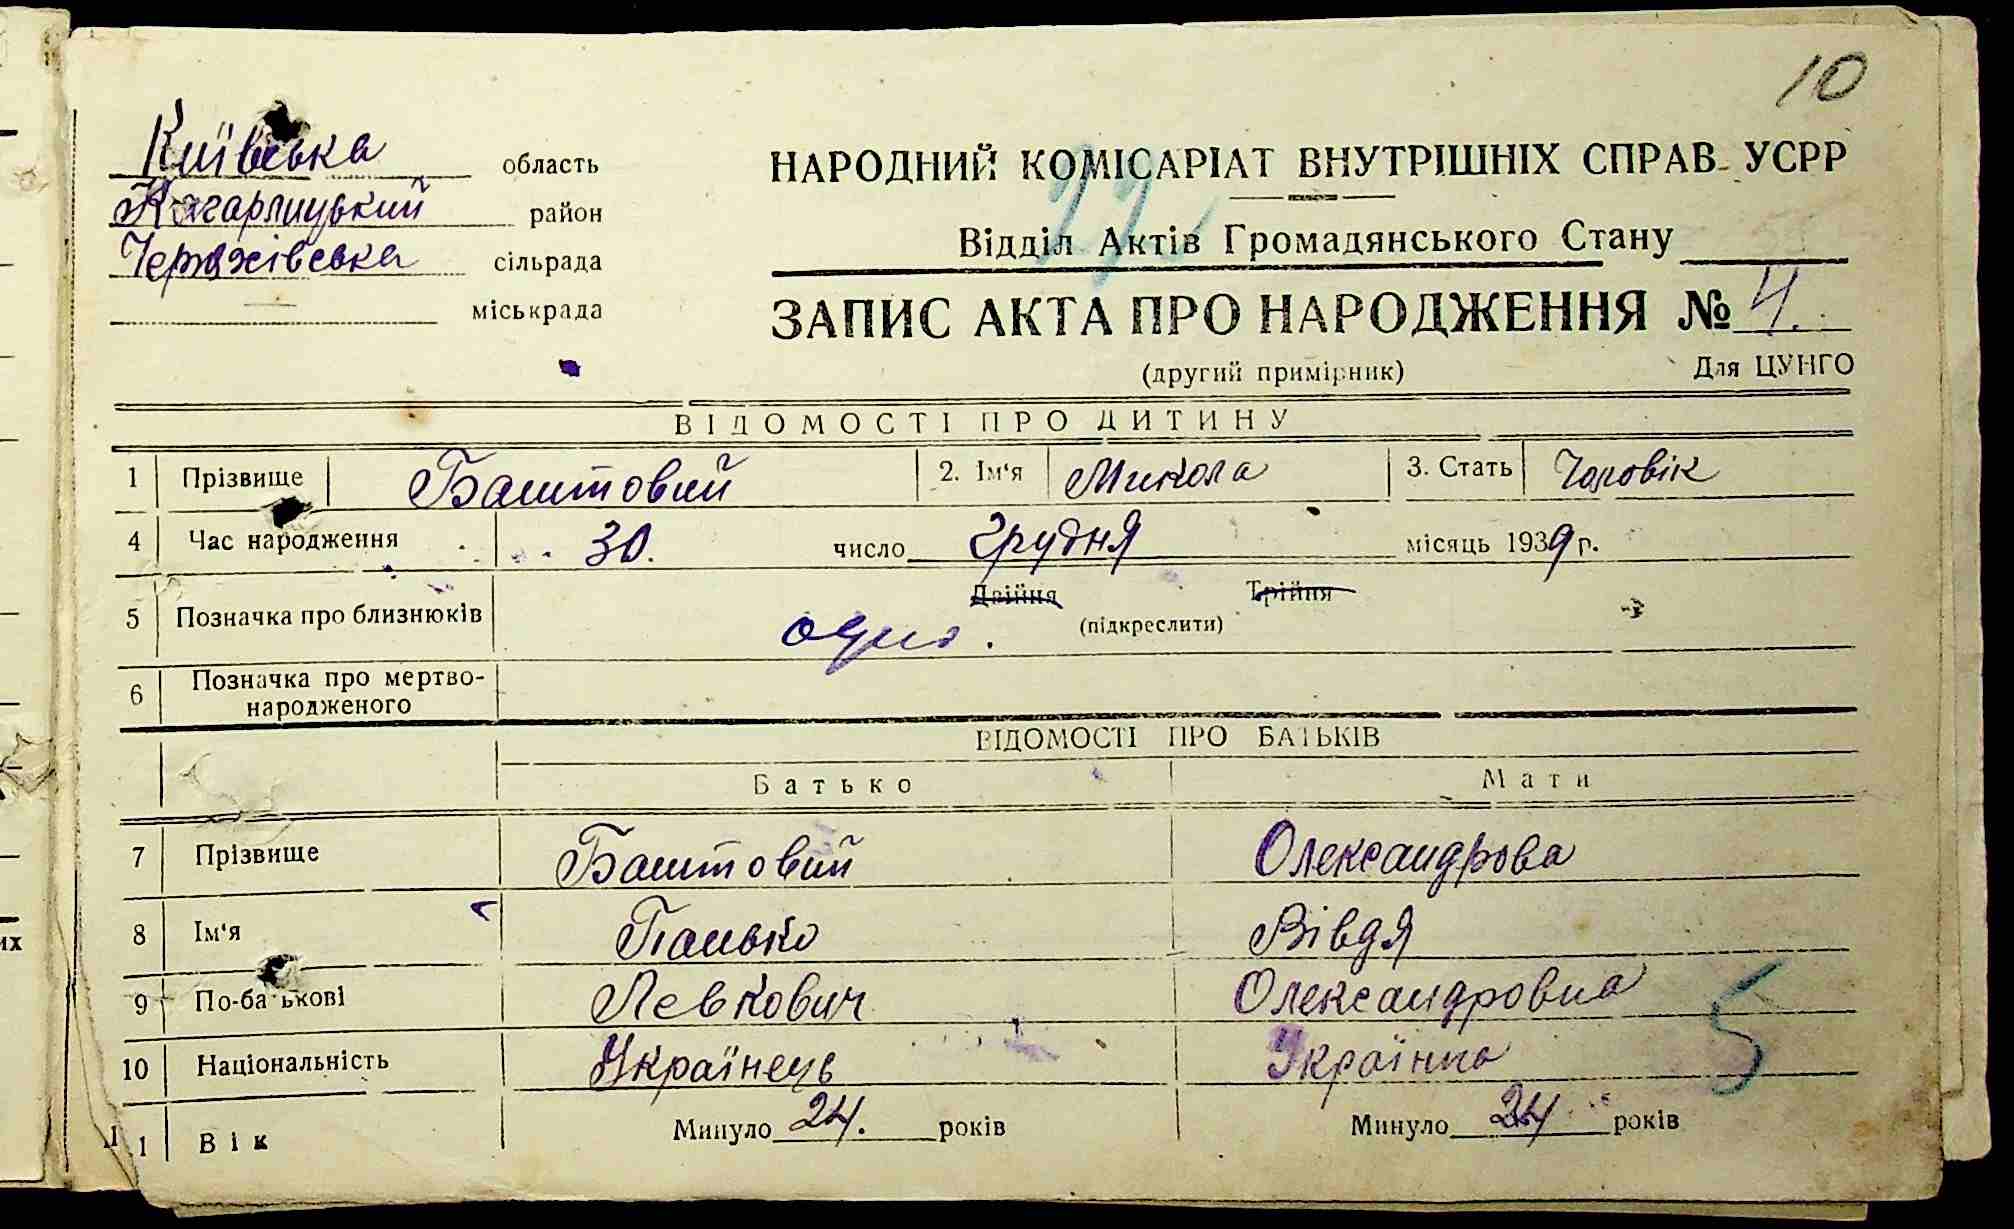 10
Київська область
Кагарлицький район
Черняхівська сільрада
міськрада
НАРОДНИЙ КОМІСАРІАТ ВНУТРІШНІХ СПРАВ УСРР
Відділ Актів Громадянського Стану
ЗАПИС АКТА ПРО НАРОДЖЕННЯ № 4.
(другий примірник) Для ЦУНГО
ВІДОМОСТІ ПРО ДИТИНУ
1 Прізвище Баштовий 2. Ім'я Микола 3. Стать Чоловік
4 Час народження 30. число грудня місяць 1939 р.
5 Позначка про близнюків Двійня Трійня
одно. (підкреслити)
6 Позначка про мертво-
народженого
ВІДОМОСТІ ПРО БАТЬКІВ
Батько Мати
7 Прізвище Баштовий Олександрова
8 Ім'я Панько Вівдя
9 По-батькові Левкович Олександровна
5
10 Національність Українець Українка
11 Вік Минуло 24. років Минуло 24 років
их